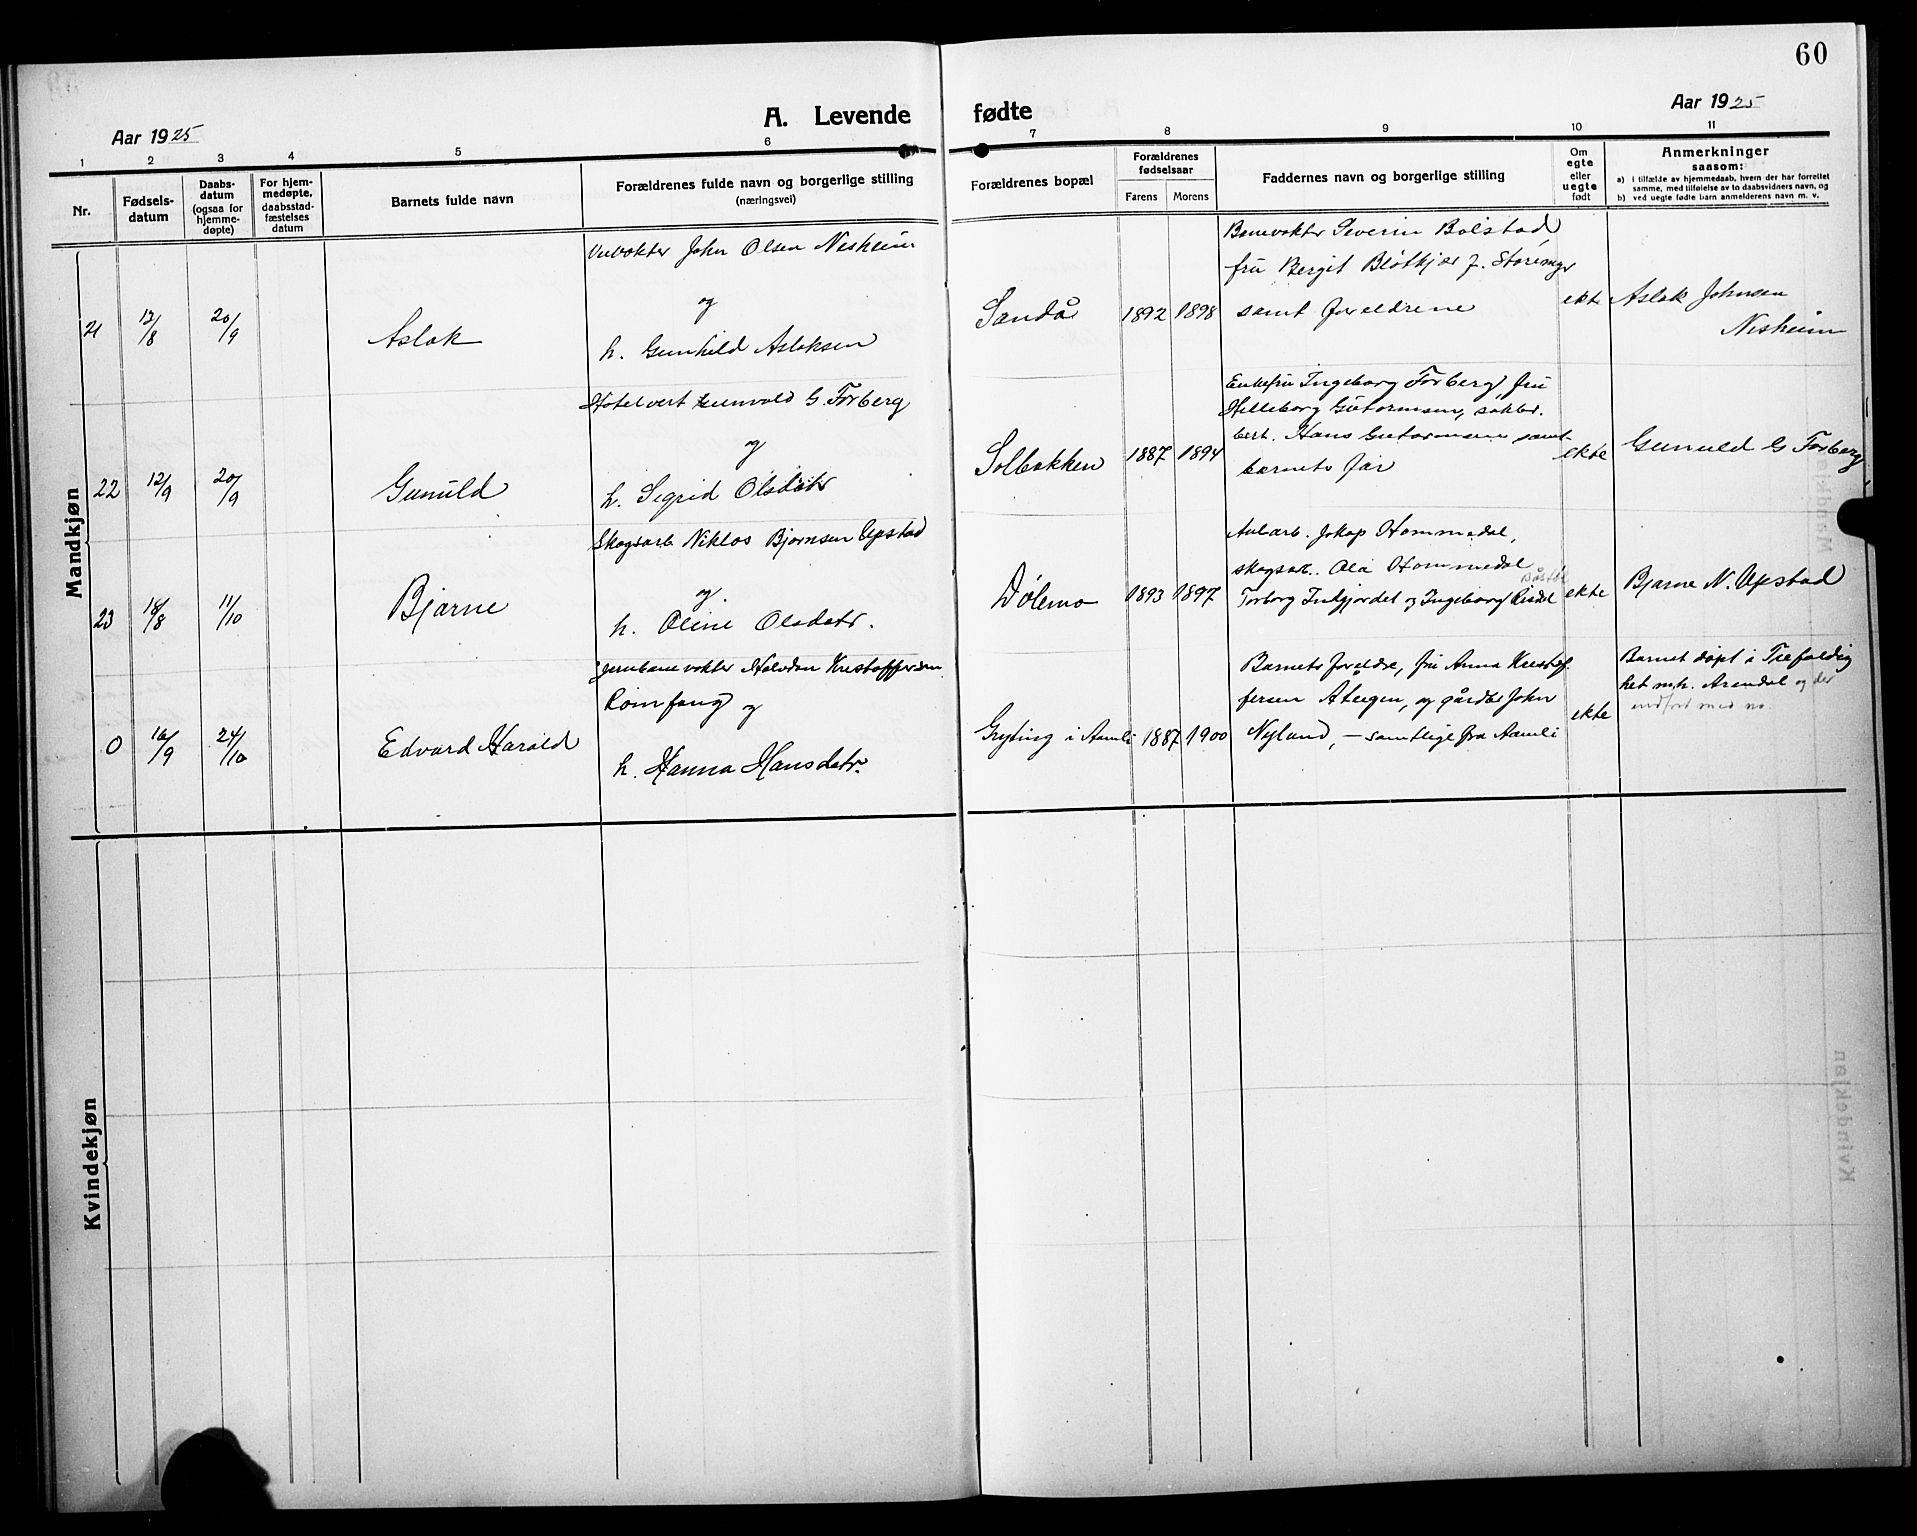 60
A. Levende fødte
Aar 1925
Aar 1925
1 2 3 4 5 6 7 8 9 10 11
Nr.
Fødsels-
datum
Daabs-
datum
(ogsaa for
hjemme-
døpte)
For hjem-
medøpte,
daabsstad-
fæstelses
datum
Barnets fulde navn
Forældrenes fulde navn og borgerlige stilling
(næringsvei)
Forældrenes bopæl
Forældrenes
fødselsaar
Farens Morens
Faddernes navn og borgerlige stilling
Om
egte
eller
uegte
født
Anmerkninger
saasom:
a) i tilfælde av hjemmedaab, hvem der har forrettet
samme, med tilføielse av to daabsvidners navn, og
b) ved uegte fødte barn anmelderens navn m. v.
Mandkjøn
21
12/8
20/9
Aslak
John Olsen Nesheim
og
h. Gunhild Aslaksen
Sandå
1892 1898
Banevokter Severin Bolstad,
fru Bergit Bløtkjær f. Storemyr
samt foreldrene
ekte
Aslak Johnsen
Nesheim
22
12/9
20/9
Gunuld
Hotelvert Gunvald G. Forberg
og
h. Sigrid Olsdatr
Solbakken
1887 1894
Enkefru Ingeborg Forberg, fru
Helleborg Gutormsen,
Hans Gutormsen samt
barnets far
ekte
Gunuld G Forberg
23
18/8
11/10
Bjarne
Skogsarb Niklos Bjørnsen Upstad
og
h. Oline Olsdatr.
Dølemo
1893 1897
Anlarb. Jakop Hommedal,
skogsar. Ola Hommedal
Torborg Inkjordet og Ingeborg Risdal
ekte
Bjarne N. Upstad
0
16/9
24/10
Edvard Harald
Jernbanevokter Halvdan Kristoffersen
Romfang og
h. Hanna Hansdatr.
Gryting i Aamli
1887 1900
Barnets foreldre, fru Anna Kristof
fersen Åteigen, og gårdbr John
Nyland, – samtlige fra Aamli
ekte
Barnet døpt i Trefoldig
het m.h. Arendal og der
indført med no.
Kvindekjøn